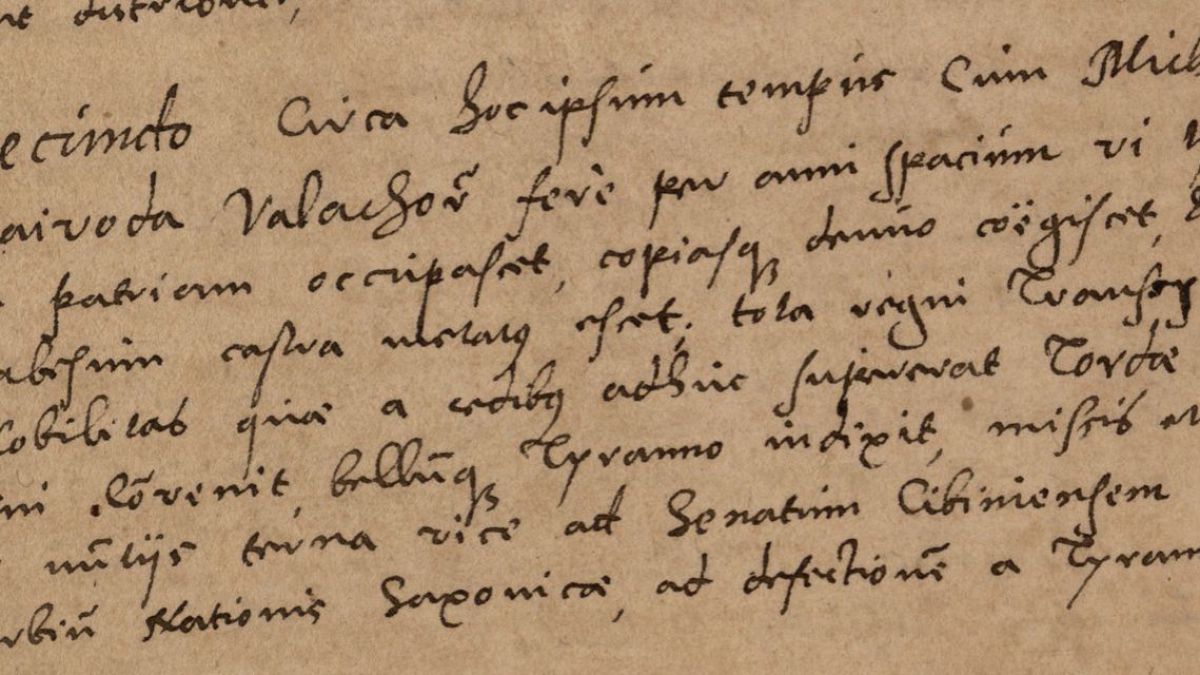 ecundo Circa hoc ipsum tempus Cum Mich
aivoda Valachor̃ ferè per anni spacium vi
patriam occupasset, copiasq; denuo coëgisset,
abesum castra metatus esset; tota regni Transsy
obilitas quæ a cedibus adhuc supererat Tordæ
ni cõvenit, bellũq; Tyranno indixit, missis et
nũtijs terna vice ad Senatum Cibiniensem
rbiũ Nationis Saxonicæ, ad defectionẽ a Tyran